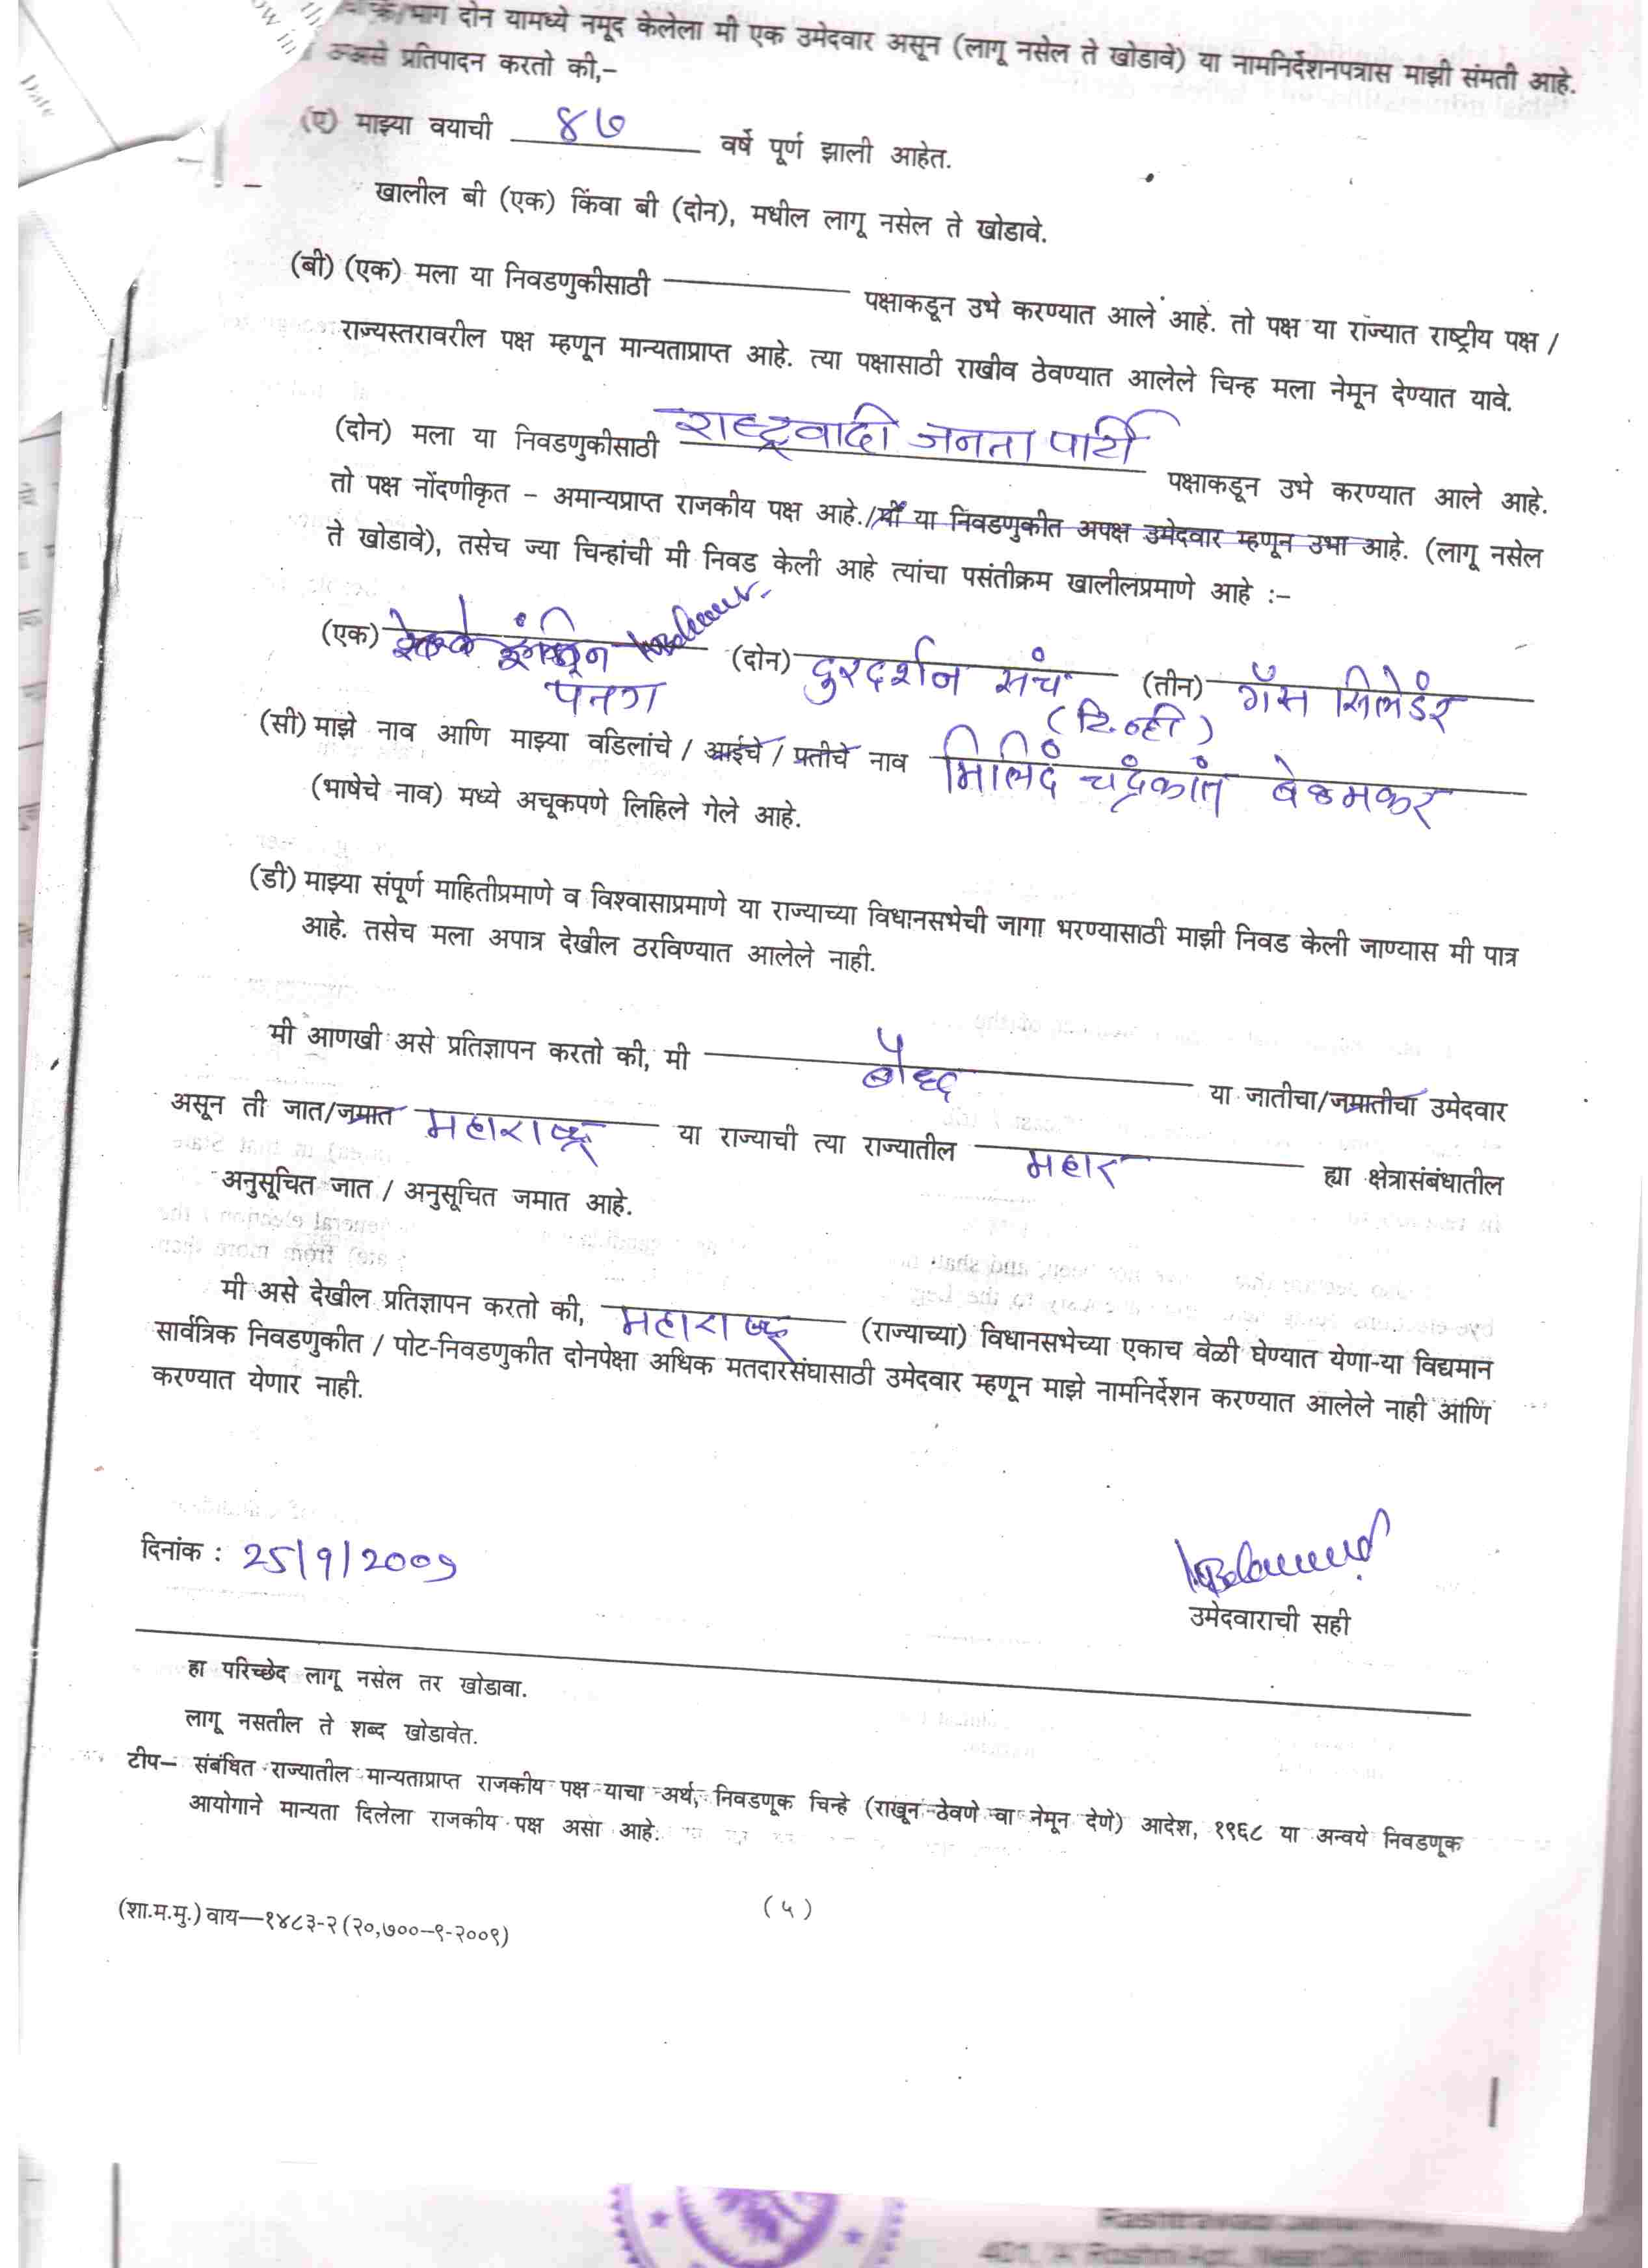 भाग दोन यामध्ये नमूद केलेला मी एक उमेदवार असून (लागू नसेल ते खोडावे) या नामनिर्देशनपत्रास माझी संमती आहे.
असे प्रतिपादन करतो की,–
(ए) माझ्या वयाची ४७ वर्षे पूर्ण झाली आहेत.
खालील बी (एक) किंवा बी (दोन), मधील लागू नसेल ते खोडावे.
(बी) (एक) मला या निवडणुकीसाठी पक्षाकडून उभे करण्यात आले आहे. तो पक्ष या राज्यात राष्ट्रीय पक्ष /
राज्यस्तरावरील पक्ष म्हणून मान्यताप्राप्त आहे. त्या पक्षासाठी राखीव ठेवण्यात आलेले चिन्ह मला नेमून देण्यात यावे.
(दोन) मला या निवडणुकीसाठी राष्ट्रवादी जनता पार्टी पक्षाकडून उभे करण्यात आले आहे.
तो पक्ष नोंदणीकृत – अमान्यप्राप्त राजकीय पक्ष आहे./मी या निवडणुकीत अपक्ष उमेदवार म्हणून उभा आहे. (लागू नसेल
ते खोडावे), तसेच ज्या चिन्हांची मी निवड केली आहे त्यांचा पसंतीक्रम खालीलप्रमाणे आहे :–
(एक) (दोन) दुरदर्शन संच (तीन) गॅस सिलेडंर
पतंग (टि.व्ही)
(सी) माझे नाव आणि माझ्या वडिलांचे / आईचे / प्रतीचे नाव मिलिदं चद्रंकांत बेळमकर
(भाषेचे नाव) मध्ये अचूकपणे लिहिले गेले आहे.
(डी) माझ्या संपूर्ण माहितीप्रमाणे व विश्वासाप्रमाणे या राज्याच्या विधानसभेची जागा भरण्यासाठी माझी निवड केली जाण्यास मी पात्र
आहे. तसेच मला अपात्र देखील ठरविण्यात आलेले नाही.
मी आणखी असे प्रतिज्ञापन करतो की, मी बौध्द या जातीचा/जमातीचा उमेदवार
असून ती जात/जमात महाराष्ट्र या राज्याची त्या राज्यातील महार ह्या क्षेत्रासंबंधातील
अनुसूचित जात / अनुसूचित जमात आहे.
मी असे देखील प्रतिज्ञापन करतो की, महाराष्ट्र (राज्याच्या) विधानसभेच्या एकाच वेळी घेण्यात येणा-या विद्यमान
सार्वत्रिक निवडणुकीत / पोट-निवडणुकीत दोनपेक्षा अधिक मतदारसंघासाठी उमेदवार म्हणून माझे नामनिर्देशन करण्यात आलेले नाही आणि
करण्यात येणार नाही.
दिनांक : 25/9/2009
उमेदवाराची सही
हा परिच्छेद लागू नसेल तर खोडावा.
लागू नसतील ते शब्द खोडावेत.
टीप— संबंधित राज्यातील मान्यताप्राप्त राजकीय पक्ष याचा अर्थ, निवडणूक चिन्हे (राखून ठेवणे वा नेमून देणे) आदेश, १९६८ या अन्वये निवडणूक
आयोगाने मान्यता दिलेला राजकीय पक्ष असा आहे.
(५)
(शा.म.मु.) वाय—१४८३-२ (२०,७००–९-२००९)